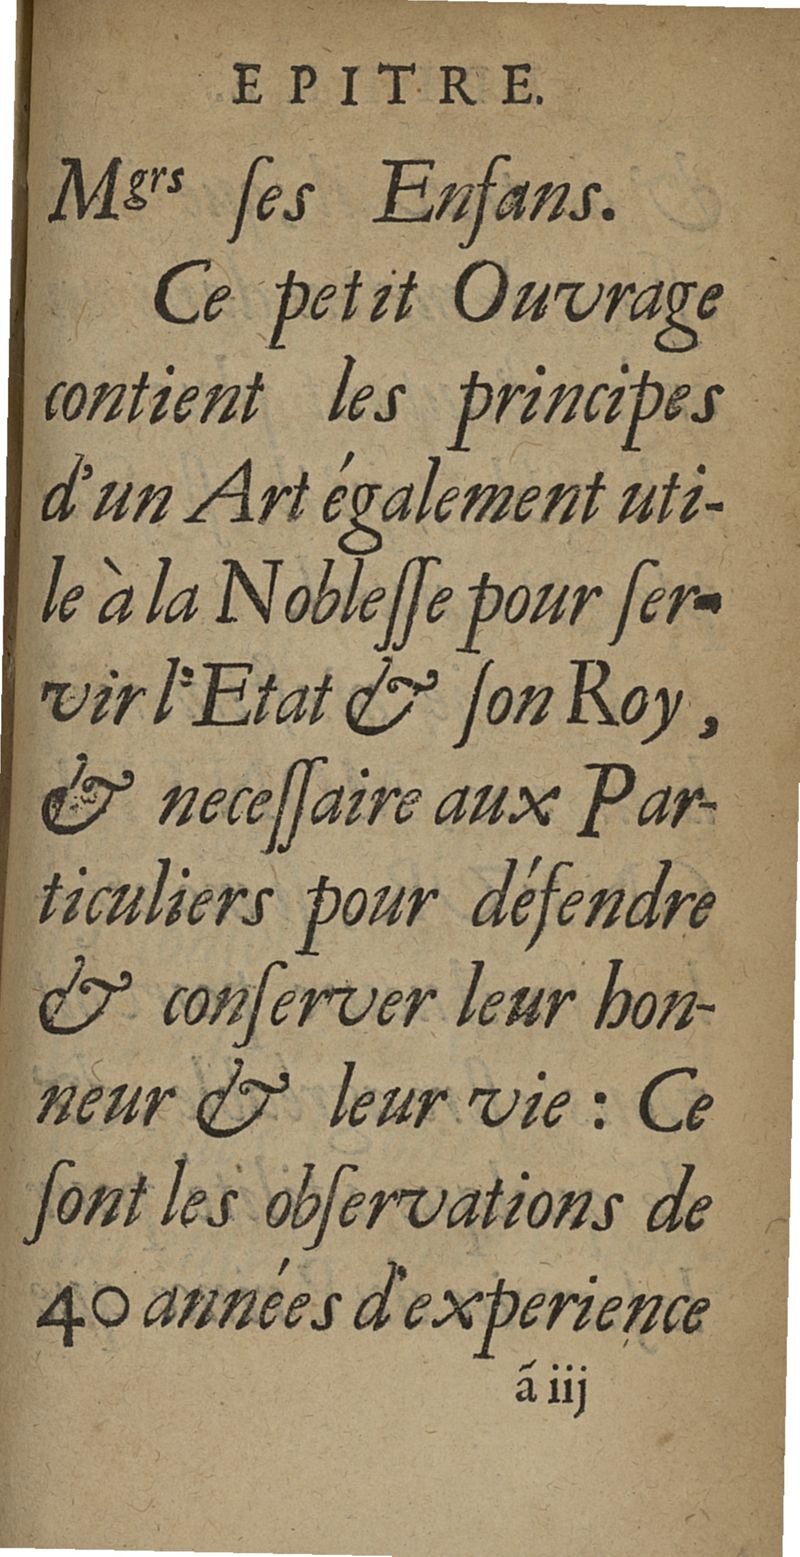 EPITRE.
Mgrs ſes Enfans.
Ce petit Ouvrage
contient les principes
d'un Art également uti-
le à la Nobleſſe pour ſer-
vir l'Etat & ſon Roy,
& neceſſaire aux Par-
ticuliers pour défendre
& conſerver leur hon-
neur & leur vie : Ce
ſont les obſervations de
40 années d'experience
ã iij